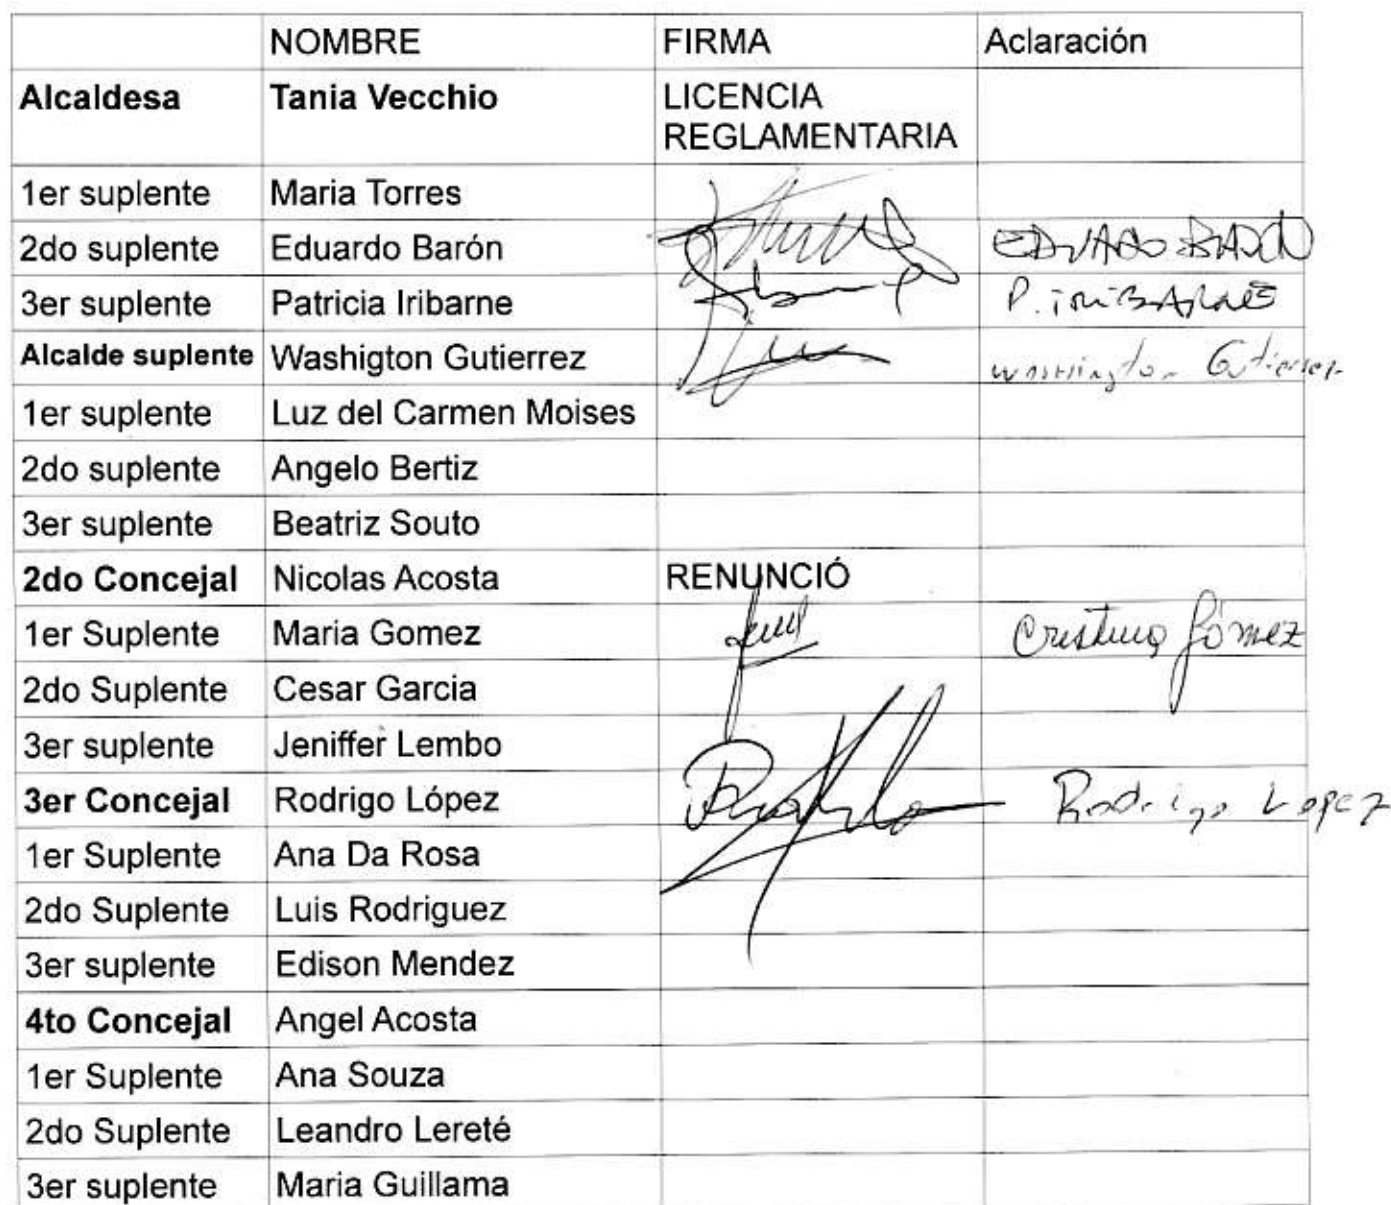 NOMBRE FIRMA Aclaración
Alcaldesa Tania Vecchio LICENCIA
REGLAMENTARIA
1er suplente Maria Torres
2do suplente Eduardo Barón EDUARDO BARON
3er suplente Patricia Iribarne P. iRiBARNE
Alcalde suplente Washigton Gutierrez Washington Gutierrez
1er suplente Luz del Carmen Moises
2do suplente Angelo Bertiz
3er suplente Beatriz Souto
2do Concejal Nicolas Acosta RENUNCIÓ
1er Suplente Maria Gomez Cristina Gómez
2do Suplente Cesar Garcia
3er suplente Jeniffer Lembo
3er Concejal Rodrigo López Rodrigo Lopez
1er Suplente Ana Da Rosa
2do Suplente Luis Rodriguez
3er suplente Edison Mendez
4to Concejal Angel Acosta
1er Suplente Ana Souza
2do Suplente Leandro Lereté
3er suplente Maria Guillama